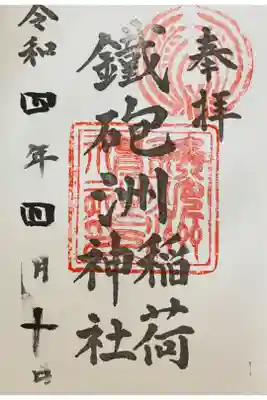 奉拝
鐵砲洲稲荷
神社
令和四年四月十日